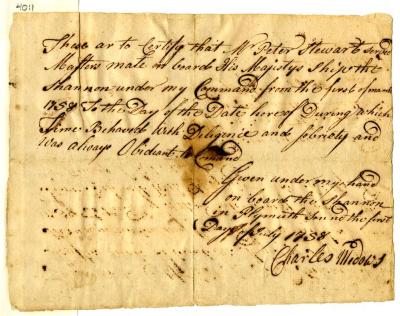 4011
These ar to Certify that Mr Peter Stewart served
Masters mate on board His Majestys Ship the
Shannon under my Command from the first of
1758 To the Day of the Date hereof During which
time Behaved with Diligence and Sobriety and
was always Obidiant to Comand
Given under my hand
on board the Shannon
in Plymouth Sound the first
Day of July 1758
Charles Medows